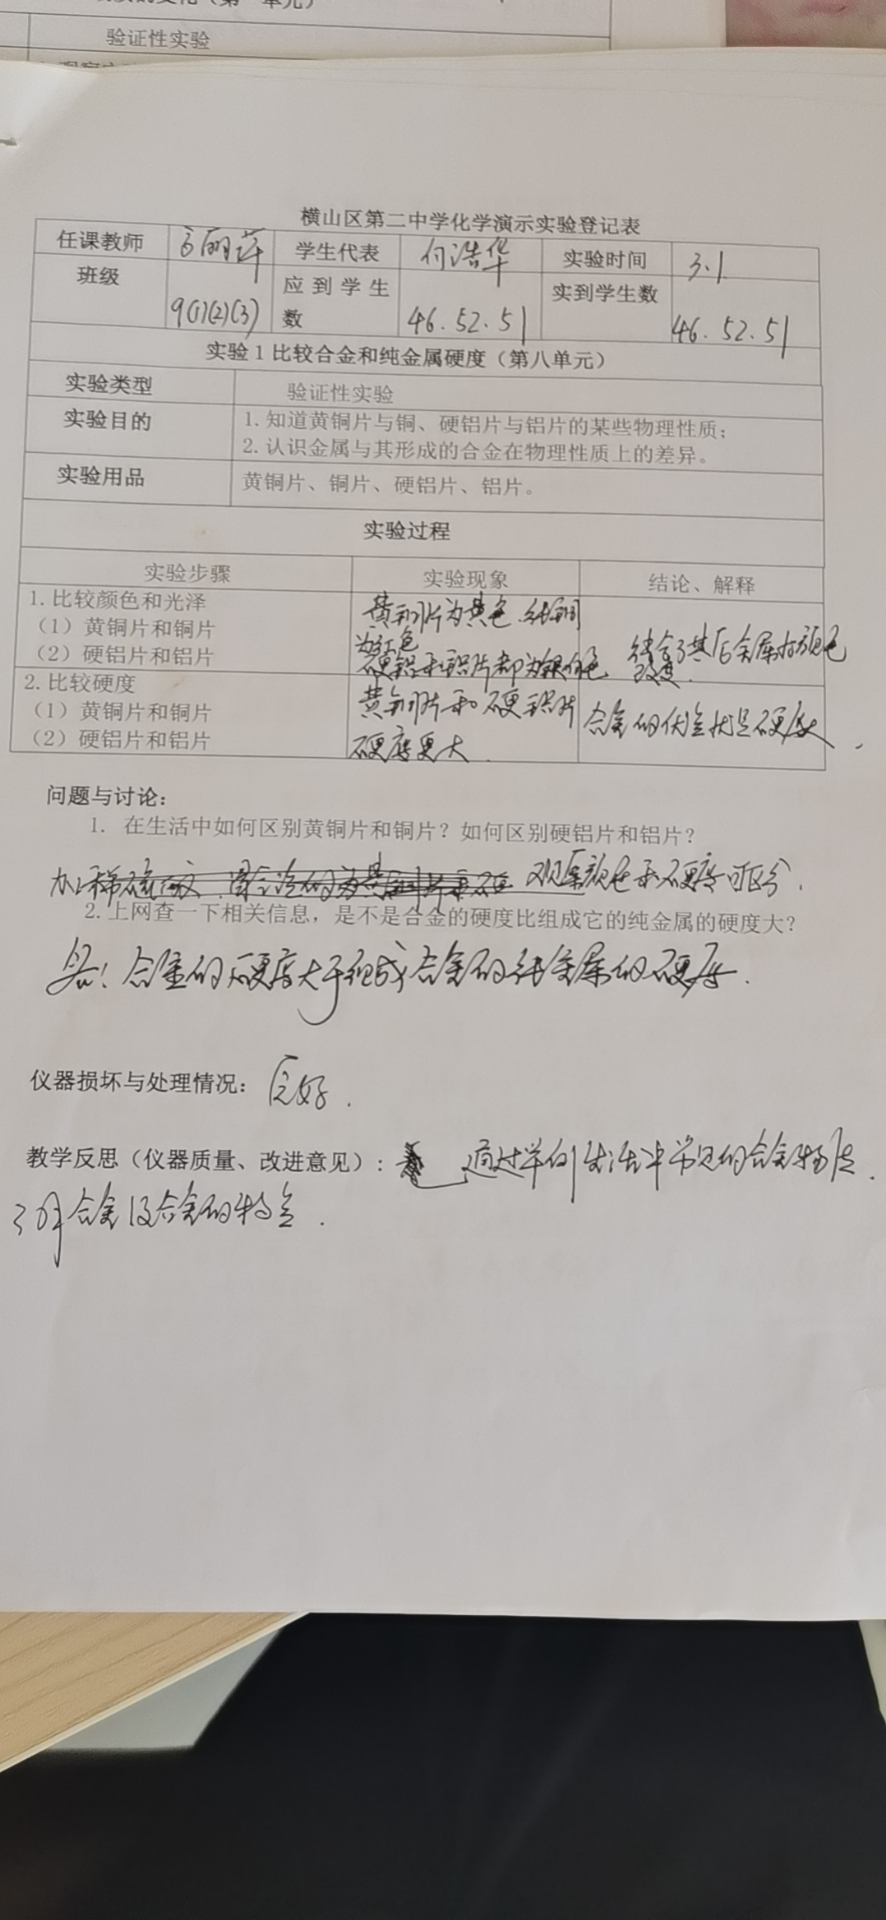 验证性实验
横山区第二中学化学演示实验登记表
任课教师 高丽萍 学生代表 何浩华 实验时间 3.1
班级 9(1)(2)(3) 应到学生数 46.52.51 实到学生数 46.52.51
实验1比较合金和纯金属硬度（第八单元）
实验类型 验证性实验
实验目的 1.知道黄铜片与铜、硬铝片与铝片的某些物理性质；
2.认识金属与其形成的合金在物理性质上的差异。
实验用品 黄铜片、铜片、硬铝片、铝片。
实验过程
实验步骤 实验现象 结论、解释
1.比较颜色和光泽
（1）黄铜片和铜片
（2）硬铝片和铝片
黄铜片为黄色.纯铜
为红色
硬铝和铝片都为银白色
金属 颜色
改变.
2.比较硬度
（1）黄铜片和铜片
（2）硬铝片和铝片
黄铜片和硬铝片
硬度更大.
合金的 硬度大
问题与讨论：
1. 在生活中如何区别黄铜片和铜片？如何区别硬铝片和铝片？
观察颜色和硬度可区分.
2.上网查一下相关信息，是不是合金的硬度比组成它的纯金属的硬度大？
是! 合金的硬度大于组成合金的纯金属的硬度.
仪器损坏与处理情况： 良好.
教学反思（仪器质量、改进意见）： 通过举例生活中常见的合金物质.
合金及合金的特点.